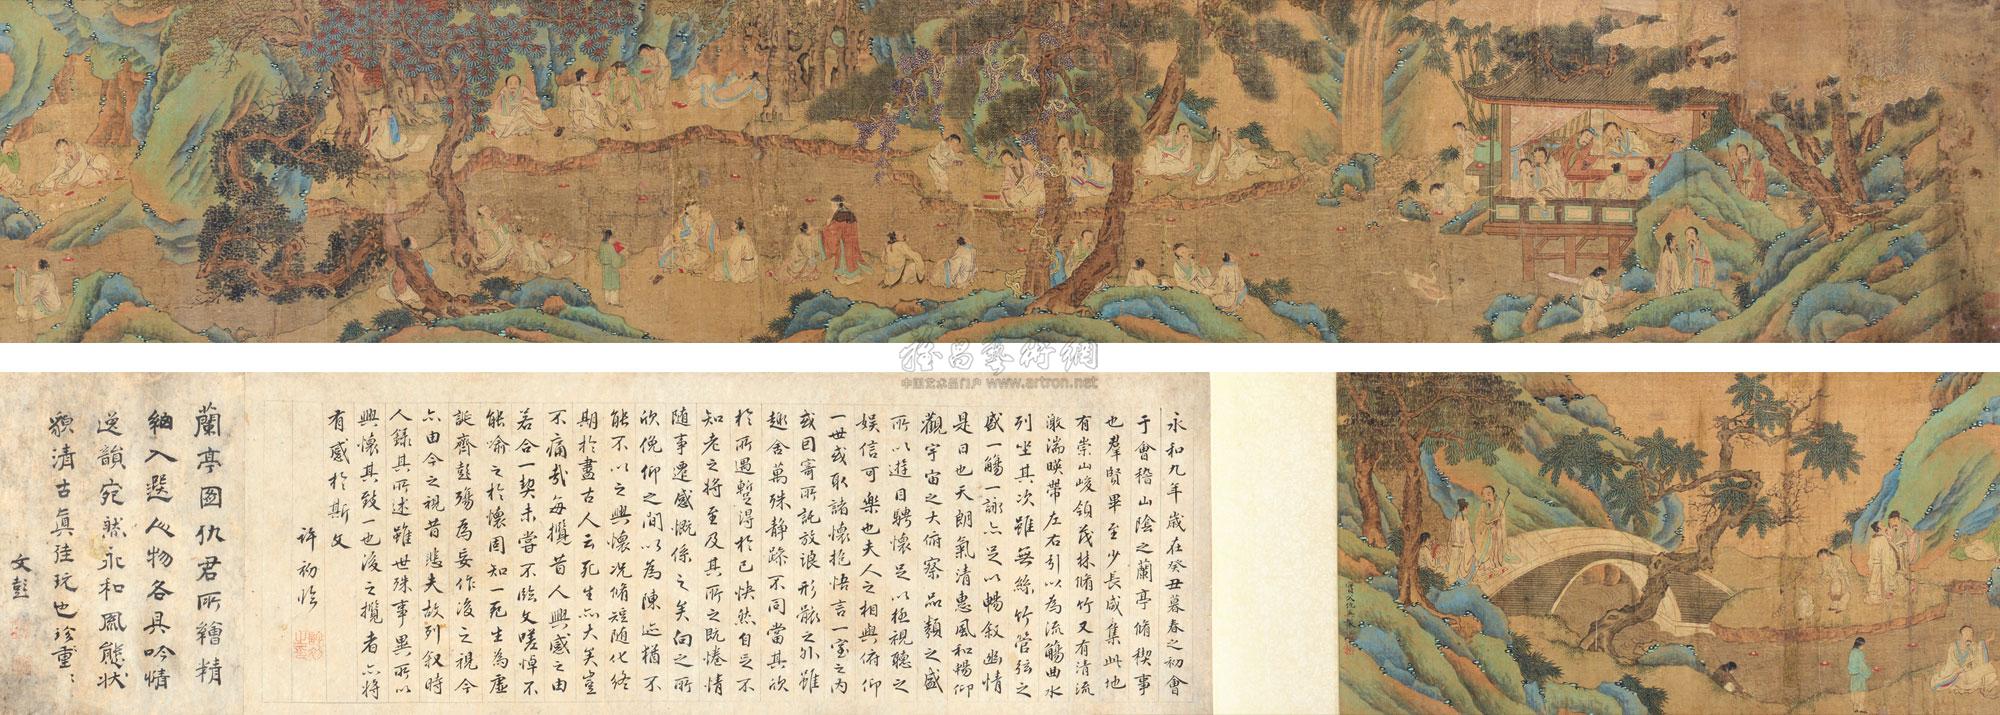 永和九年歲在癸丑暮春之初會
于會稽山陰之蘭亭脩稧事
也羣賢畢至少長咸集此地
有崇山峻領茂林脩竹又有清流
激湍暎帶左右引以為流觴曲水
列坐其次雖無絲竹管弦之
盛一觴一詠亦足以暢叙幽情
是日也天朗氣清惠風和暢仰
觀宇宙之大俯察品類之盛
所以遊目騁懷足以極視聽之
娛信可樂也夫人之相與俯仰
一世或取諸懷抱悟言一室之內
或因寄所託放浪形骸之外雖
趣舍萬殊靜躁不同當其欣
於所遇暫得於己怏然自足不
知老之將至及其所之既惓情
隨事遷感慨係之矣向之所
欣俛仰之間以為陳迹猶不
能不以之興懷況脩短隨化終
期於盡古人云死生亦大矣豈
不痛哉每攬昔人興感之由
若合一契未嘗不臨文嗟悼不
能喻之於懷固知一死生為虛
誕齊彭殤為妄作後之視今
亦由今之視昔悲夫故列叙時
人錄其所述雖世殊事異所以
興懷其致一也後之攬者亦將
有感於斯文
許初臨
蘭亭圖仇君所繪精
細入選人物各具吟情
逸韻宛然永和風態狀
貌清古真佳玩也珍重珍重
文彭
雅昌藝術網
中国艺术品门户 www.artron.net